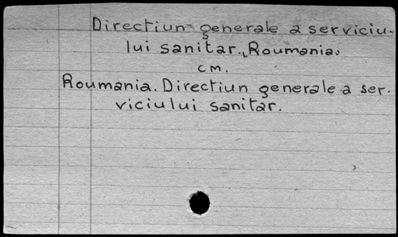 Directiun generale a serviciu-
lui sanitar., Roumania.
cm.
Roumania. Directiun generale a ser.
viciului sanitar.